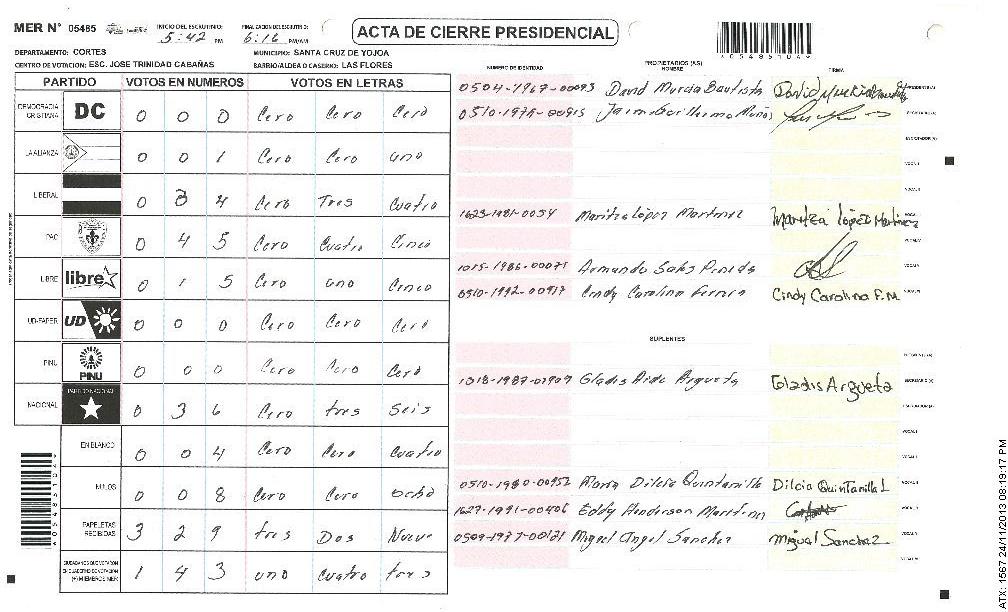 MER N° 05485 INICIO DEL ESCRUTINIO: 5:42 PM FINALIZACION DEL ESCRUTINIO: 6:16 PM/AM
ACTA DE CIERRE PRESIDENCIAL
DEPARTAMENTO: CORTES MUNICIPIO: SANTA CRUZ DE YOJOA
CENTRO DE VOTACION: ESC. JOSE TRINIDAD CABAÑAS BARRIO/ALDEA O CASERIO: LAS FLORES
PARTIDO VOTOS EN NUMEROS VOTOS EN LETRAS
DEMOCRACIA CRISTIANA DC 0 0 0 Cero Cero Cero
LA ALIANZA 0 0 1 Cero Cero uno
LIBERAL 0 3 4 Cero Tres Cuatro
PAC 0 4 5 Cero Cuatro Cinco
LIBRE libre 0 1 5 Cero uno Cinco
UD-FAPER UD 0 0 0 Cero Cero Cero
PINU PINU 0 0 0 Cero Cero Cero
NACIONAL PARTIDO NACIONAL 0 3 6 Cero tres Seis
EN BLANCO 0 0 4 Cero Cero Cuatro
NULOS 0 0 8 Cero Cero ocho
PAPELETAS RECIBIDAS 3 2 9 tres Dos Nueve
CIUDADANOS QUE VOTARON EN CUADERNO DE VOTACION (+) MIEMBROS MER 1 4 3 uno cuatro tres
NUMERO DE IDENTIDAD PROPIETARIOS (AS) NOMBRE FIRMA
0504-1967-00093 David Murcia Bautista
0510-1975-00915
1623-1981-0054 Maritza López Martinez Maritza López Martinez
1015-1986-00071 Armando Salas Pineda
0510-1992-00917 Cindy Carolina Cindy Carolina F.M
SUPLENTES
1018-1987-01907 Gladis Argueta Gladis Argueta
0510-1980-00952 Maria Dilcia Quintanilla Dilcia Quintanilla L
1627-1991-00406 Eddy Anderson Martinez
0509-1977-00121 Miguel Angel Sanchez Miguel Sanchez
ATX: 1567 24/11/2013 08:19:17 PM